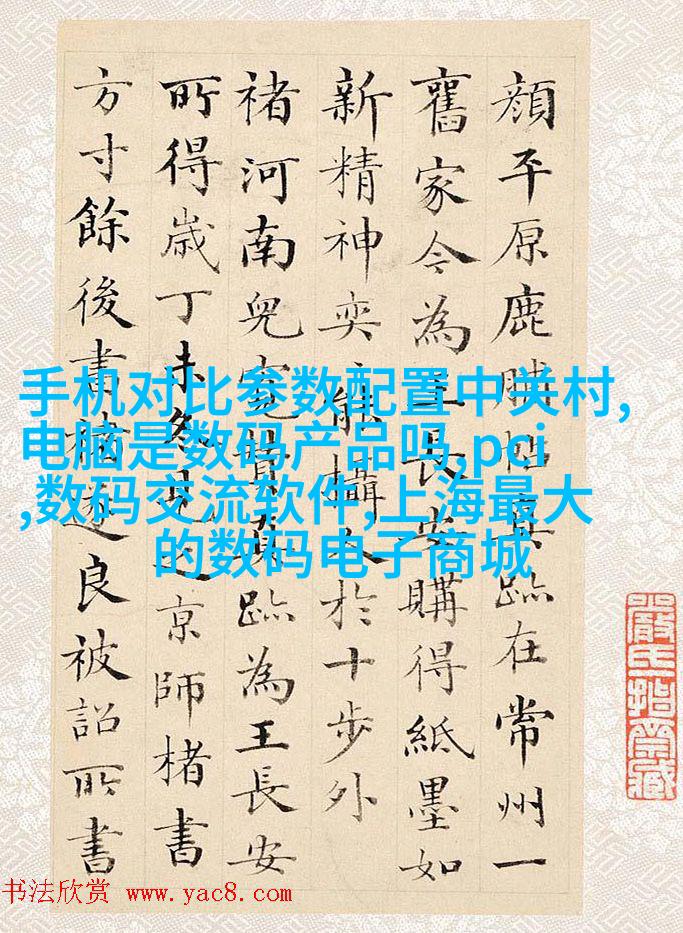 顔平原鹿脯帖真跡在常州一
舊家今為王長安購得紙墨如
新精神奕〻能攝人於十步外
褚河南兒寬贊真跡為王長安
所得歲丁未冬見之京師楮書
方寸餘後書褚遂良被詔所書
手机对比参数配置中关村,
电脑是数码产品吗,pci
,数码交流软件,上海最大
的数码电子商城
书法欣赏 www.yac8.com